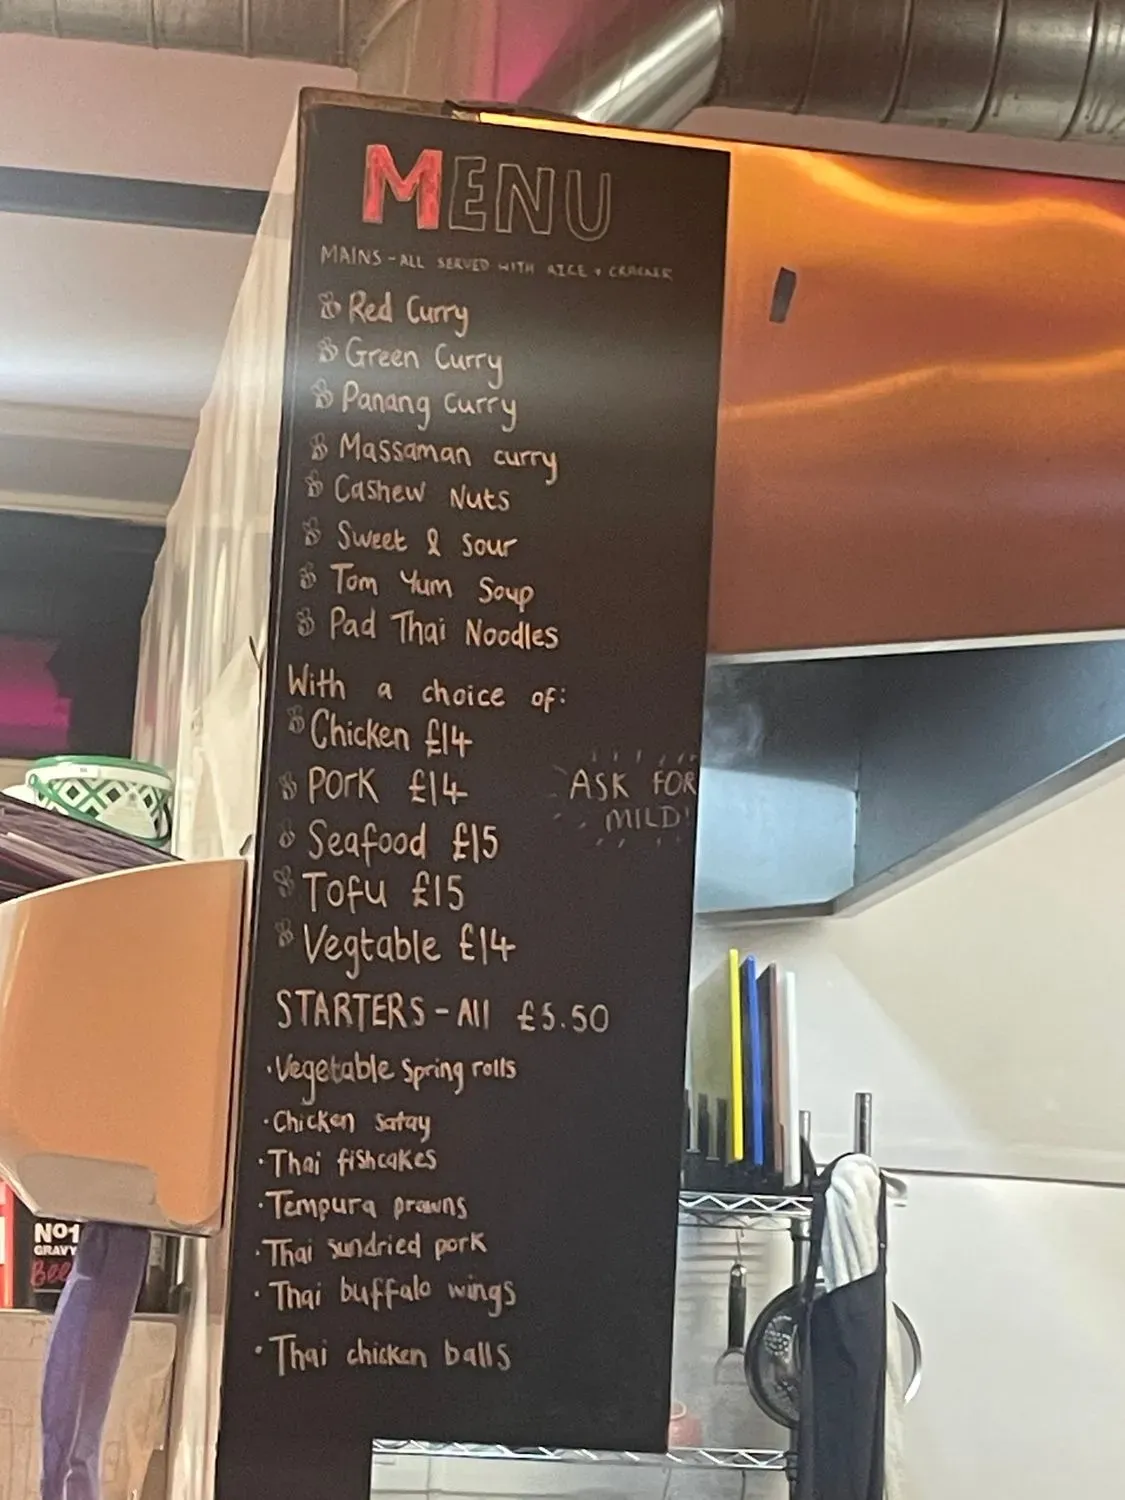 MENU
MAINS - ALL SERVED WITH RICE + CRACKER
Red Curry
Green Curry
Panang Curry
Massaman curry
Cashew Nuts
Sweet & Sour
Tom Yum Soup
Pad Thai Noodles
With a choice of:
Chicken £14
Pork £14
Seafood £15
Tofu £15
Vegtable £14
ASK FOR
MILD!
STARTERS - All £5.50
·Vegetable Spring rolls
·Chicken satay
·Thai fishcakes
·Tempura prawns
·Thai sundried pork
·Thai buffalo wings
·Thai chicken balls
No1
GRAVY